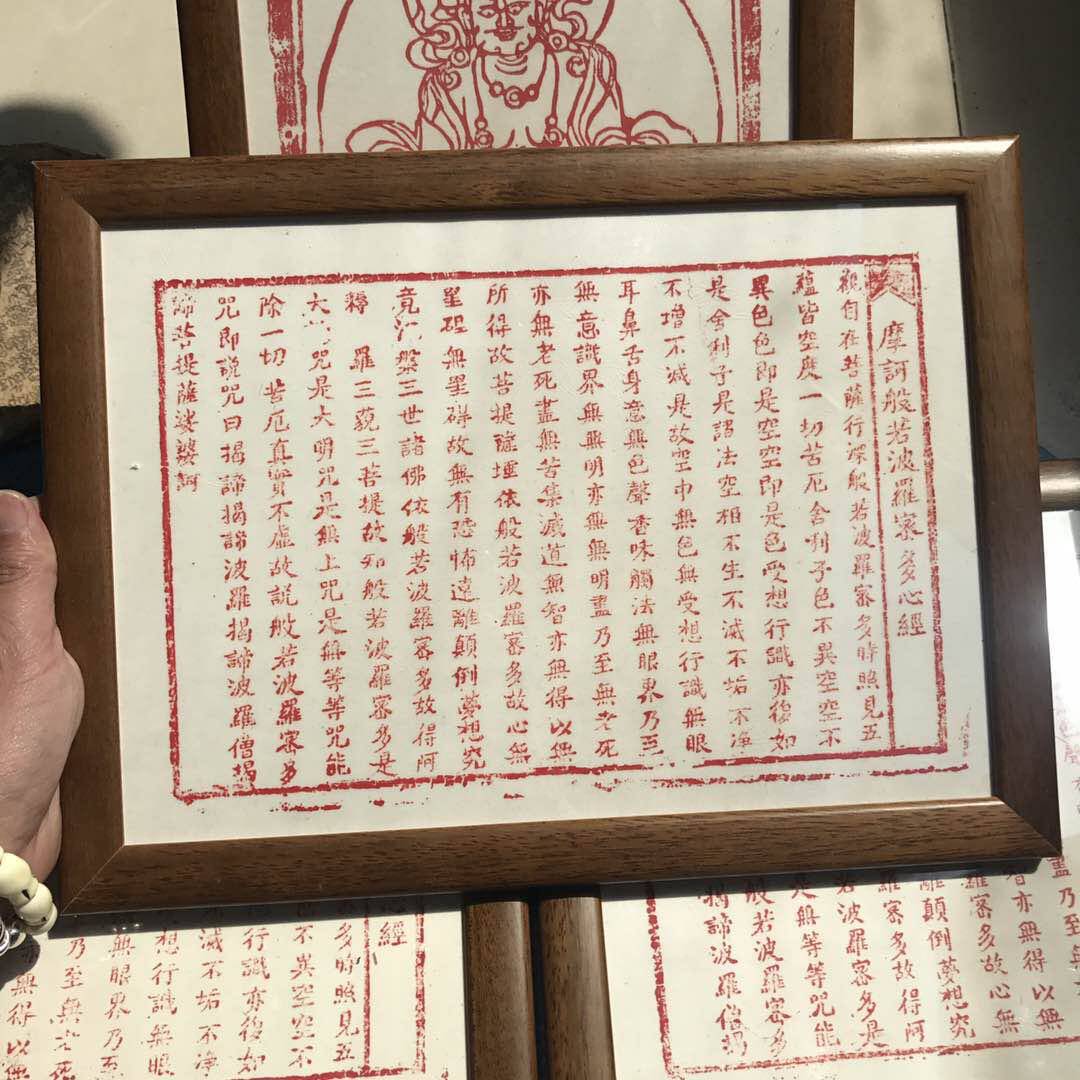 摩訶般若波羅蜜多心經
觀自在菩薩行深般若波羅蜜多時照見五
蘊皆空度一切苦厄舍利子色不異空空不
異色色即是空空即是色受想行識亦復如
是舍利子是諸法空相不生不滅不垢不淨
不增不減是故空中無色無受想行識無眼
耳鼻舌身意無色聲香味觸法無眼界乃至
無意識界無無明亦無無明盡乃至無老死
亦無老死盡無苦集滅道無智亦無得以無
所得故菩提薩埵依般若波羅蜜多故心無
罣礙無罣礙故無有恐怖遠離顛倒夢想究
竟涅槃三世諸佛依般若波羅蜜多故得阿
耨 羅三藐三菩提故知般若波羅蜜多是
大 咒是大明咒是無上咒是無等等咒能
除一切苦厄真實不虛故說般若波羅蜜多
咒即說咒曰揭諦揭諦波羅揭諦波羅僧揭
諦菩提薩婆婆訶
盡乃至無
智亦無得以無
羅蜜多故心無
離顛倒夢想究
羅蜜多故得阿
若波羅蜜多是
是無等等咒能
般若波羅蜜多
揭諦波羅僧揭
經
多時照見五
不異空空不
行識亦復如
滅不垢不淨
想行識無眼
無眼界乃至
乃至無老死
無得以無